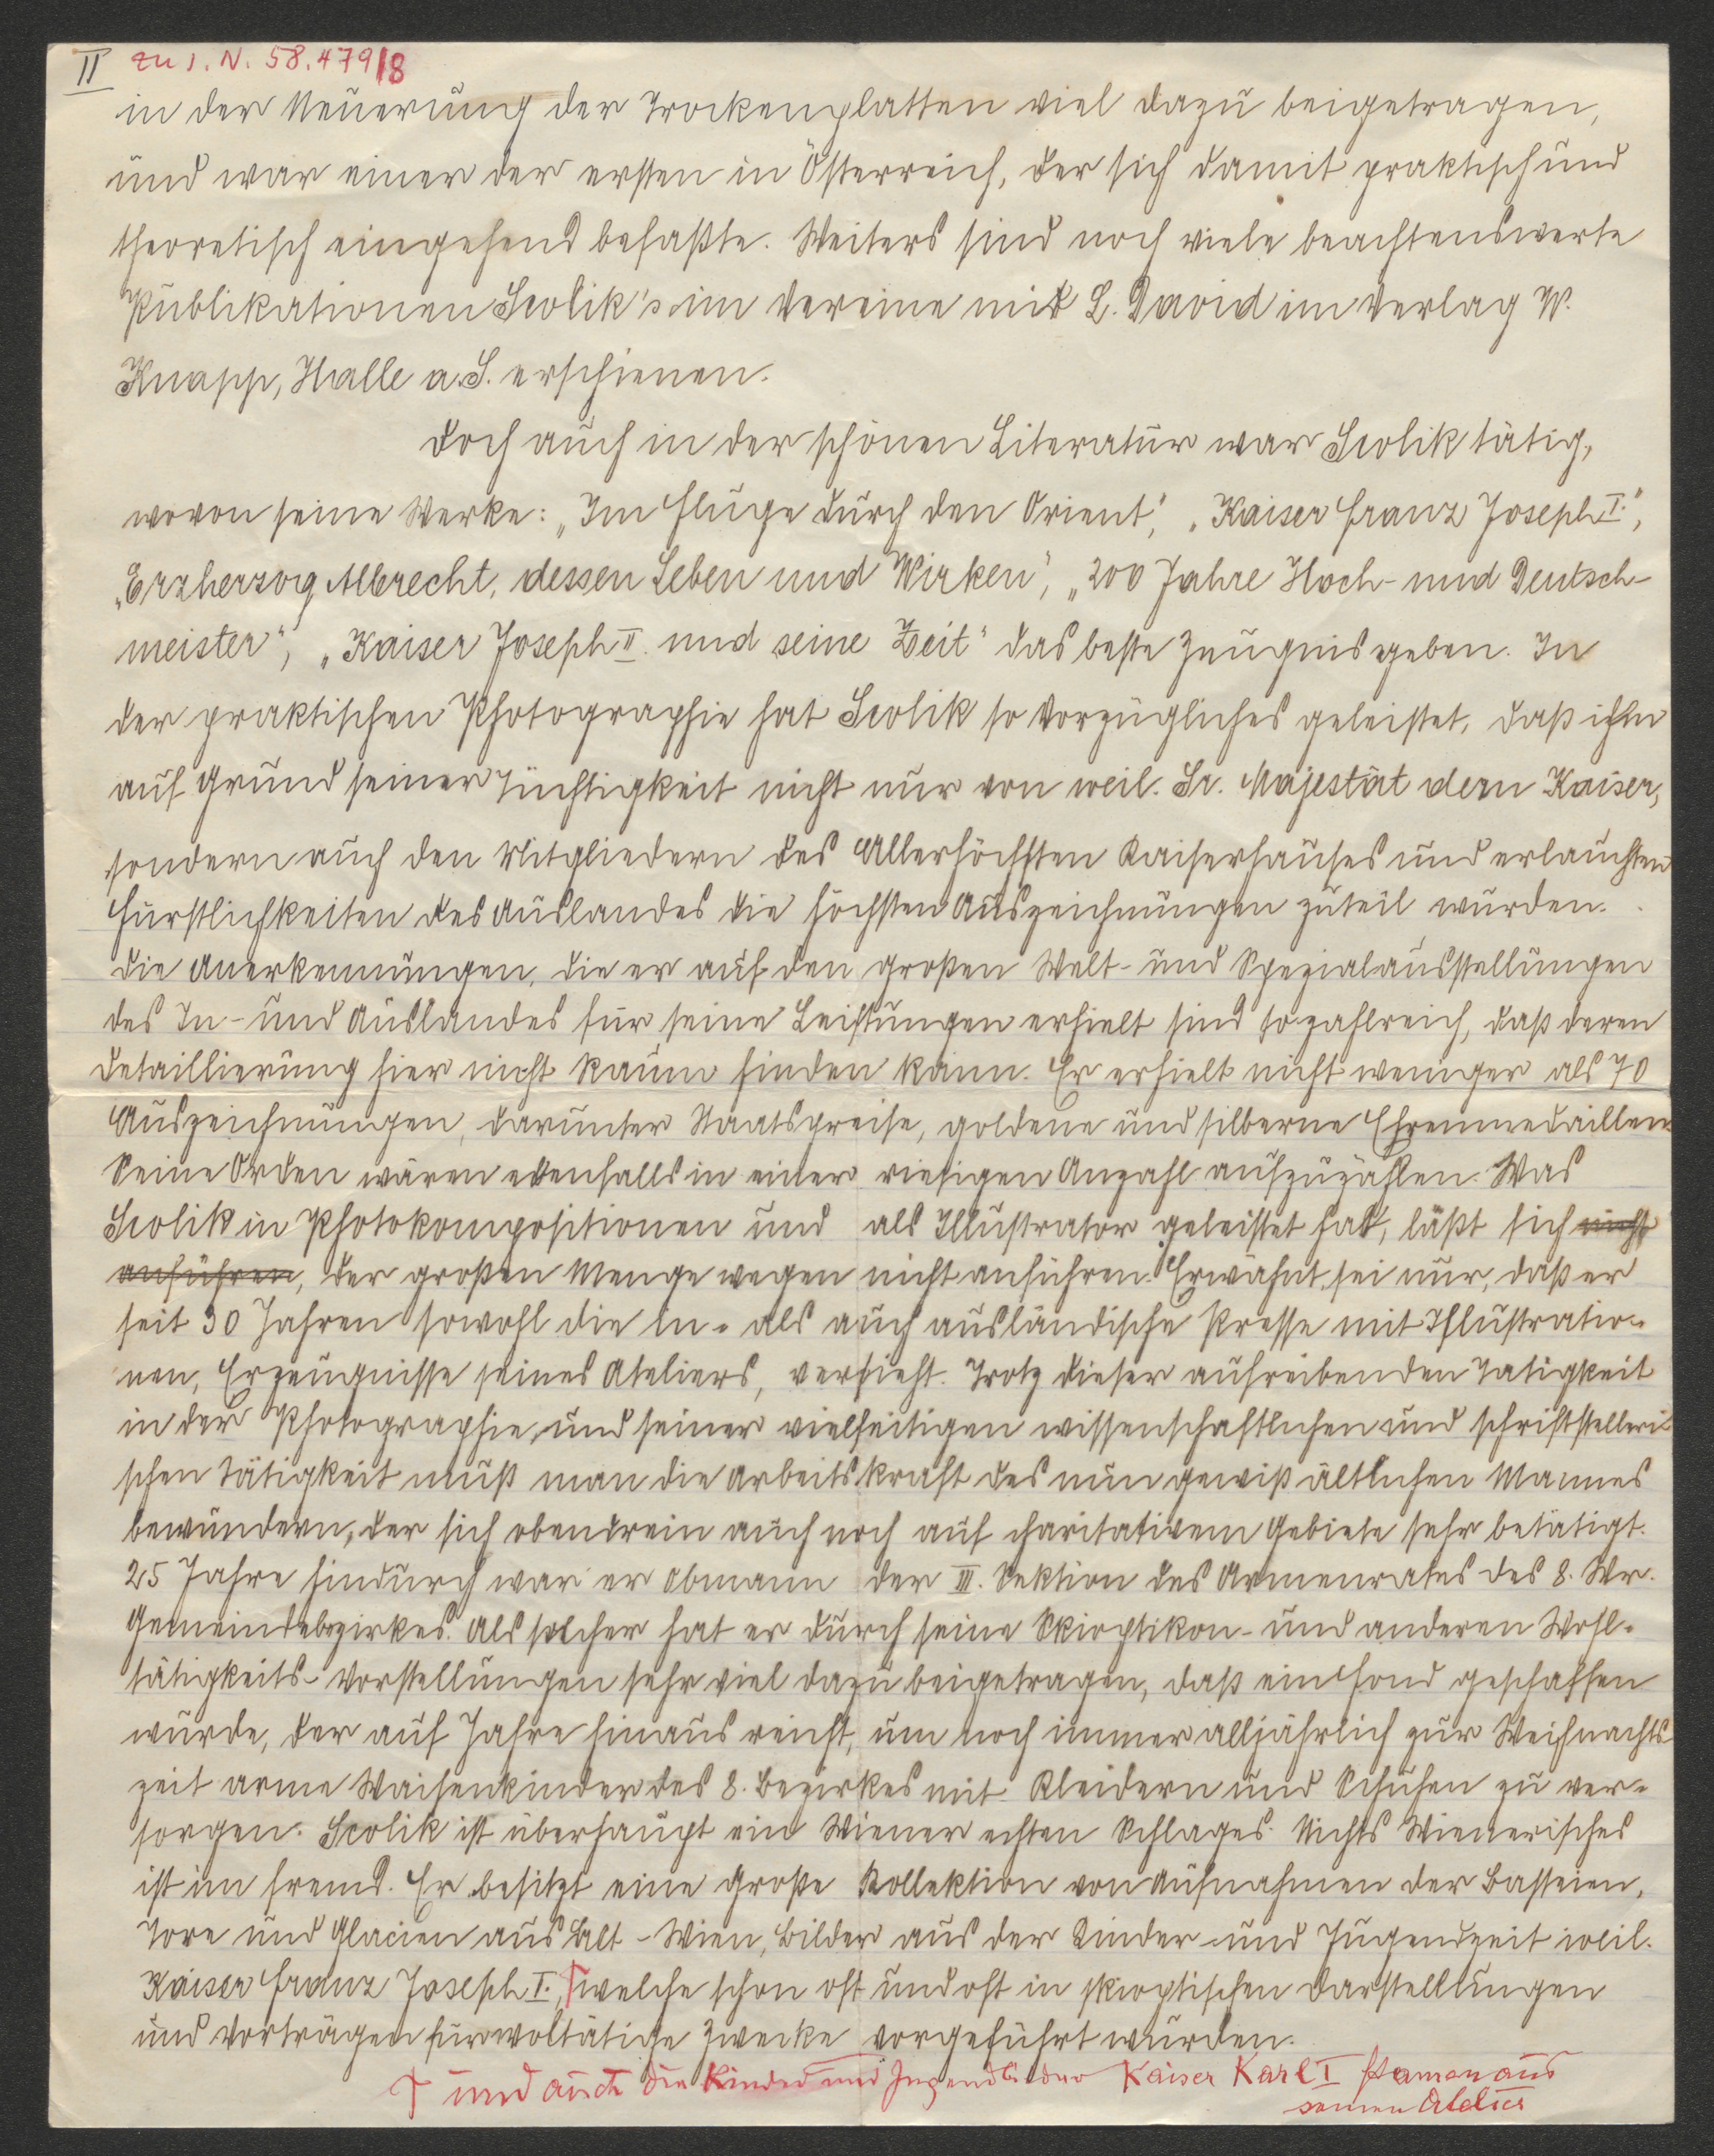 II zu I. N. 58.479/8
in der Neuerung der Trockenplatten viel dazu beigetragen,
und war einer der ersten in Österreich, der sich damit praktisch und
theoretisch eingehend befaßte. Weiters sind noch viele beachtenswerte
Publikationen Scolik's im Vereine mit L. David im Verlag W.
Knapp, Halle a. S. erschienen.
Doch auch in der schönen Literatur war Scolik tätig,
wovon seine Werke: „Im Fluge durch den Orient“, „Kaiser Franz Joseph I.“,
„Erzherzog Albrecht, dessen Leben und Wirken“, „200 Jahre Hoch- und Deutsch-
meister“, „Kaiser Joseph II. und seine Zeit“ das beste Zeugnis geben. In
der praktischen Photographie hat Scolik so Vorzügliches geleistet, daß ihm
auf Grund seiner Tüchtigkeit nicht nur von weil. Sr. Majestät dem Kaiser,
sondern auch den Mitgliedern des Allerhöchsten Kaiserhauses und erlauchten
Fürstlichkeiten des Auslandes die höchsten Auszeichnungen zuteil wurden.
Die Anerkennungen, die er auf den großen Welt- und Spezialausstellungen
des In- und Auslandes für seine Leistungen erhielt sind so zahlreich, daß deren
Detaillierung hier nicht Raum finden kann. Er erhielt nicht weniger als 70
Auszeichnungen, darunter Staatspreise, goldene und silberne Ehrenmedaillen
Seine Orden wären ebenfalls in einer riesigen Anzahl aufzuzählen. Was
Scolik in Photokompositionen und als Illustrator geleistet hat, läßt sich nicht
anführen, der großen Menge wegen nicht anführen. Erwähnt sei nur, daß er
seit 30 Jahren sowohl die in- als auch ausländische Presse mit Illustratio-
nen, Erzeugnisse seines Ateliers, versieht. Trotz dieser aufreibenden Tätigkeit
in der Photographie, und seiner vielseitigen wissenschaftlichen und schriftstelleri-
schen Tätigkeit muß man die Arbeitskraft des nun gewiß ältlichen Mannes
bewundern, der sich obendrein auch noch auf charitativem Gebiete sehr betätigt.
25 Jahre hindurch war er Obmann der III. Sektion des Armenrates des 8. Wr.
Gemeindebezirkes. Als solcher hat er durch seine Skioptikon- und anderen Wohl-
tätigkeits-Vorstellungen sehr viel dazu beigetragen, daß ein Fond geschaffen
wurde, der auf Jahre hinaus reicht, um noch immer alljährlich zur Weihnachts
zeit arme Waisenkinder des 8. Bezirkes mit Kleidern und Schuhen zu ver-
sorgen. Scolik ist überhaupt ein Wiener echten Schlages. Nichts Wienerisches
ist im fremd. Er besitzt eine große Kollektion von Aufnahmen der Basteien,
Tore und Glacien aus Alt-Wien, Bilder aus der Kinder- und Jugendzeit weil.
Kaiser Franz Joseph I., welche schon oft und oft in skioptischen Darstellungen
und Vorträgen für woltätige Zwecke vorgeführt wurden.
und auch die Kinder und Jugendbilder Kaiser Karl I stamen aus
seinen Atelier